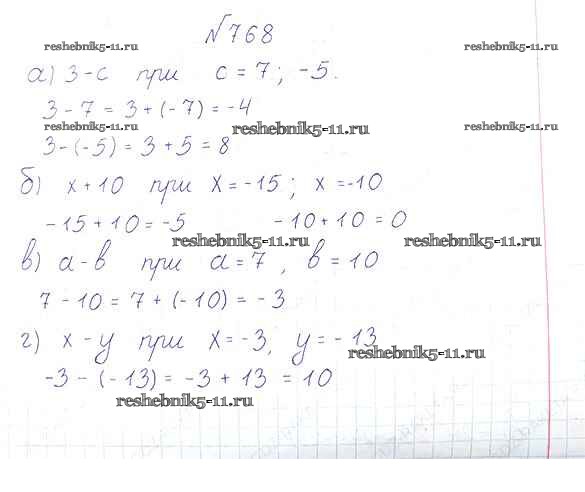 №768
reshebnik5-11.ru reshebnik5-11.ru
а) 3-с при с = 7; -5.
3 - 7 = 3 + (-7) = -4
reshebnik5-11.ru reshebnik5-11.ru reshebnik5-11.ru
3 - (-5) = 3 + 5 = 8
б) х + 10 при х = -15; х = -10
-15 + 10 = -5 -10 + 10 = 0
reshebnik5-11.ru reshebnik5-11.ru
в) а - в при а = 7, в = 10
7 - 10 = 7 + (-10) = -3
г) х - у при х = -3, у = -13
reshebnik5-11.ru
-3 - (-13) = -3 + 13 = 10
reshebnik5-11.ru